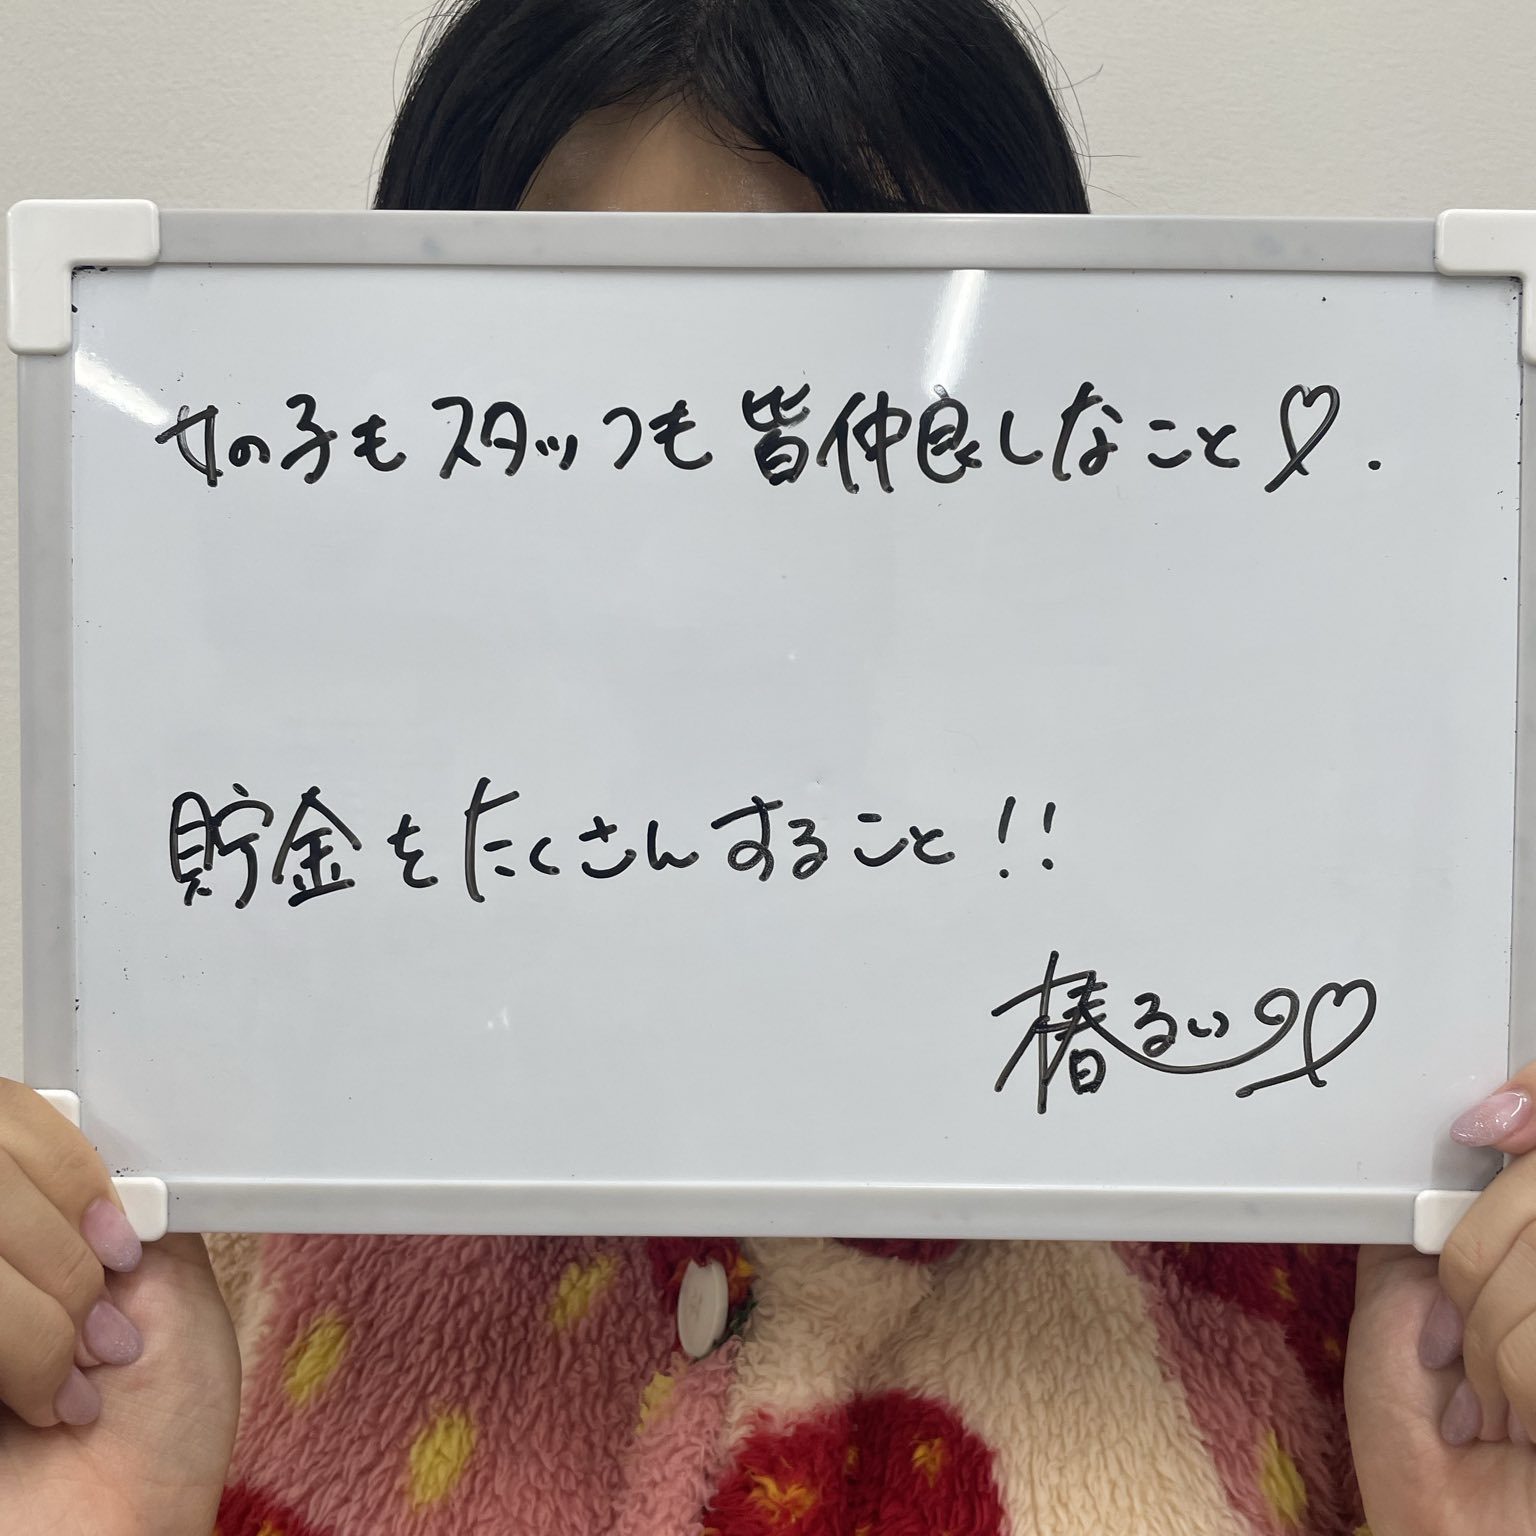 女の子もスタッフも皆仲良しなこと♡.
貯金をたくさんすること!!
椿るい♡